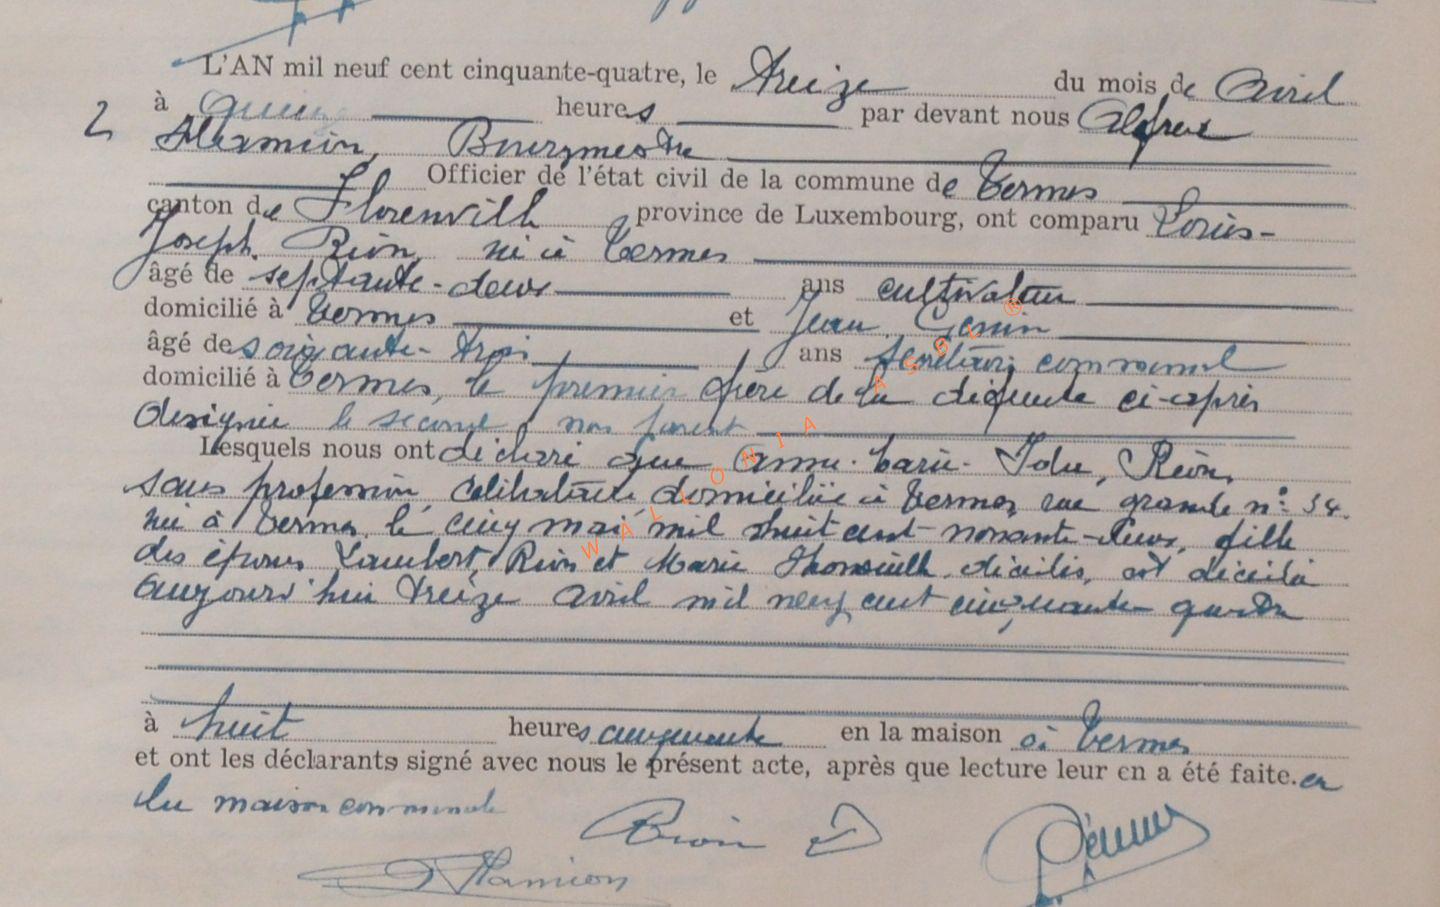 L'AN mil neuf cent cinquante-quatre, le treize du mois de avril
2 à quinze heures par devant nous Alfred
Hamion, Bourgmestre
Officier de l'état civil de la commune de Termes
canton de Florenville province de Luxembourg, ont comparu Louis-
Joseph Rion, né à Termes
âgé de septante-deux ans cultivateur
domicilié à Termes et Jean
âgé de soixante-trois ans secrétaire communal
domicilié à Termes, le premier frère de la défunte ci-après
désignée le second non parent
Lesquels nous ont déclaré que Anne-Marie- Rion,
sans profession, célibataire domiciliée à Termes rue grande n°
née à Termes, le cinq mai mil huit cent nonante-deux, fille
des époux Lambert Rion et Marie décédés, est décédée
aujourd'hui treize avril mil neuf cent cinquante quatre
à huit heures cinquante en la maison à Termes
et ont les déclarants signé avec nous le présent acte, après que lecture leur en a été faite. en
la maison communale
Rion
Hamion
WALLONIA ASBL ®